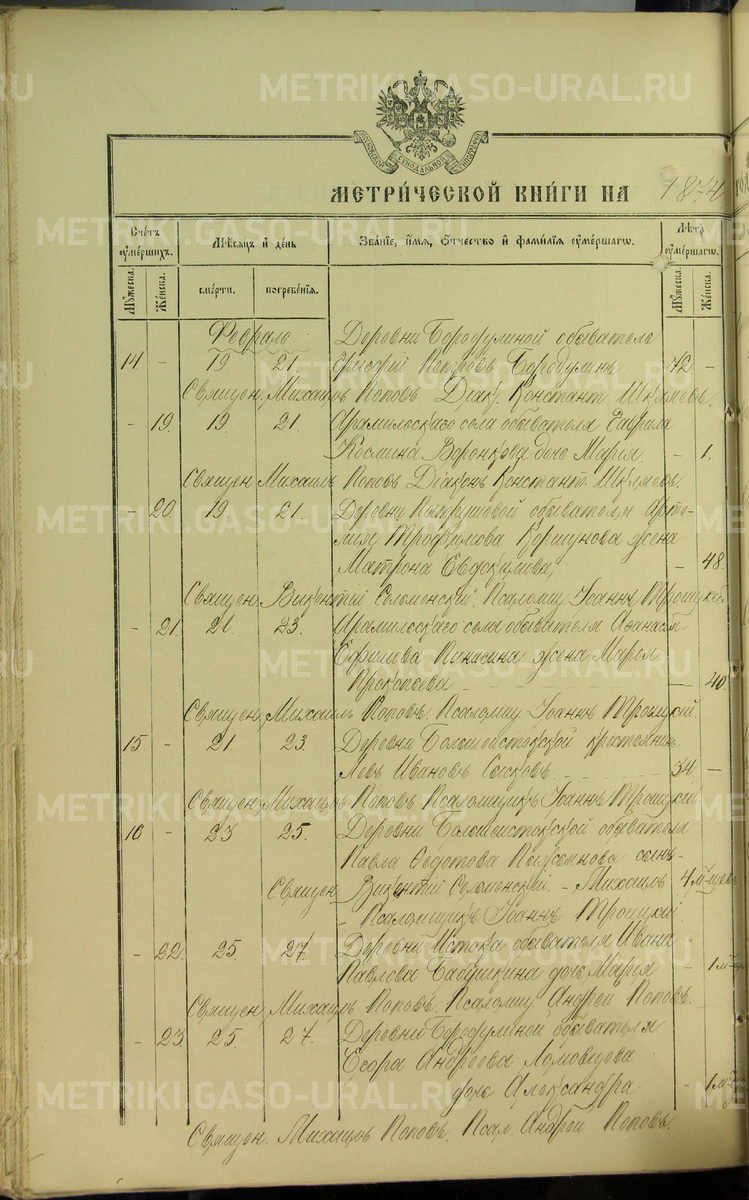 METRIKI.GASO-URAL.RU
МЕТРИ́ЧЕСКОЙ КНИ́ГИ НА 1874
Сче́тъ ᲂумє́ршихъ.
Мѣ́сяцъ и҆ де́нь
Зва́нїе, и҆́мя, ѻ҆́тчество и҆ фами́лїя ᲂумє́ршагѡ.
Лѣ́та ᲂумє́ршагѡ.
Мꙋ́жеска.
Же́нска.
сме́рти.
погребе́нїя.
Мꙋ́жеска.
Же́нска.
Февраль Деревни Бородулиной обывателя
14 - 19 21. Григорій Петровъ Бородулинъ 72 -
Священ. Михаилъ Поповъ Діак. Констант.
- 19. 19. 21. Арамильскаго села обывателя Гаврила
Космина Воронкова дочь Марія - 1.
Священ. Михаилъ Поповъ. Діаконъ Констант.
- 20 19 21. Деревни Патрушевой обывателя Арте-
мія Трофимова Коршунова жена
Матрона Евдокимова, - 48.
Священ. Викентій Селоменскій. Псаломщ. Іоаннъ Троицкій.
- 21. 21. 23. Арамильскаго села обывателя Аѳанасія
жена Марѳа
Прокопьева - 40.
Священ. Михаилъ Поповъ. Псаломщ. Іоаннъ Троицкій.
15 - 21 23. Деревни Большеистокской крестьянинъ
Левъ Ивановъ Сысковъ. 34. -
Священ. Михаилъ Поповъ Псаломщикъ Іоаннъ Троицкій
16 - 23 25. Деревни Большеистокской обывателя
Павла Ѳедотова сынъ
Священ. Викентій Селоменскій. - Михаилъ 4 м-цевъ
- Псаломщикъ Іоаннъ Троицкій.
- 22. 25. 27. Деревни Истока обывателя Ивана
Павлова Бабушкина дочь Марія - 1 м-ца
Священ. Михаилъ Поповъ. Псаломщ. Андрей Поповъ.
- 23 25 27. Деревни Бородулиной обывателя
Егора Андреева Ломовцева
дочь Александра - 1 м-ца
Священ. Михаилъ Поповъ. Псал. Андрей Поповъ.